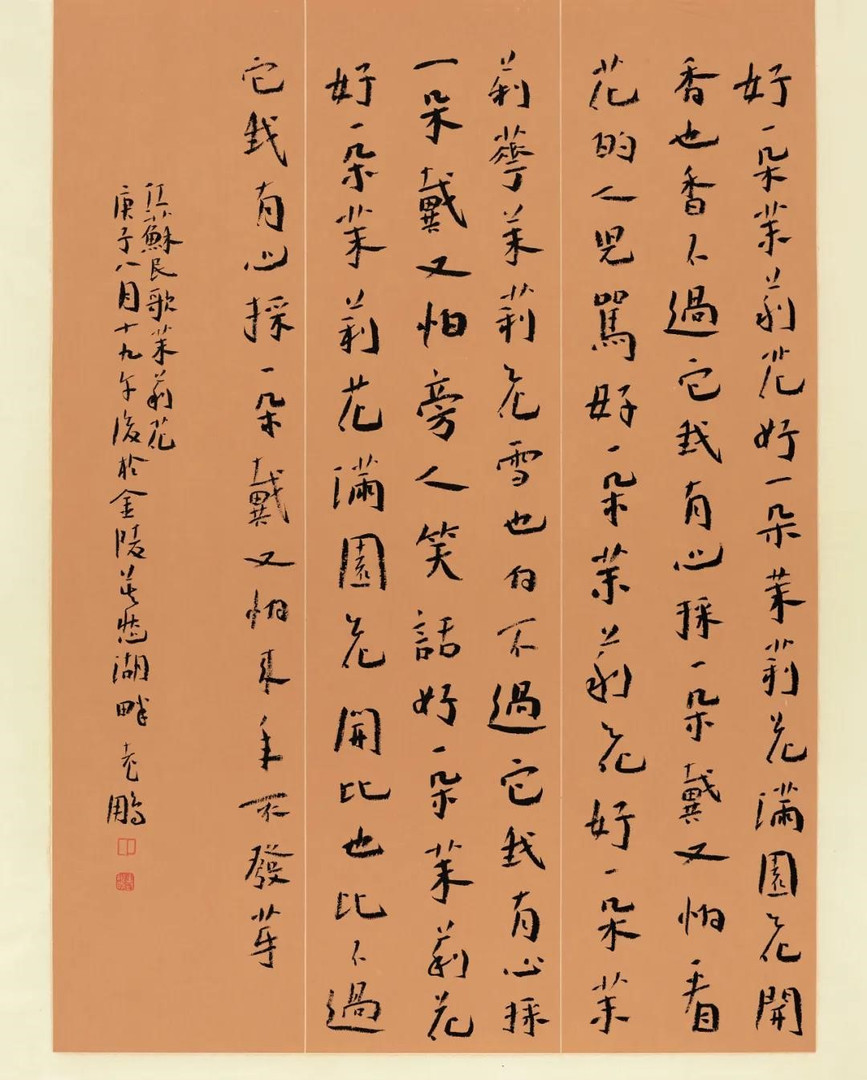 好一朵茉莉花好一朵茉莉花滿園花開
香也香不過它我有心採一朵戴又怕看
花的人兒駡好一朵茉莉花好一朵茉
莉華茉莉花雪也白不過它我有心採
一朵戴又怕旁人笑話好一朵茉莉花
好一朵茉莉花滿園花開比也比不過
它我有心採一朵戴又怕來年不發芽
江蘇民歌茉莉花
庚子八月十九午後於金陵莫愁湖畔 鵬